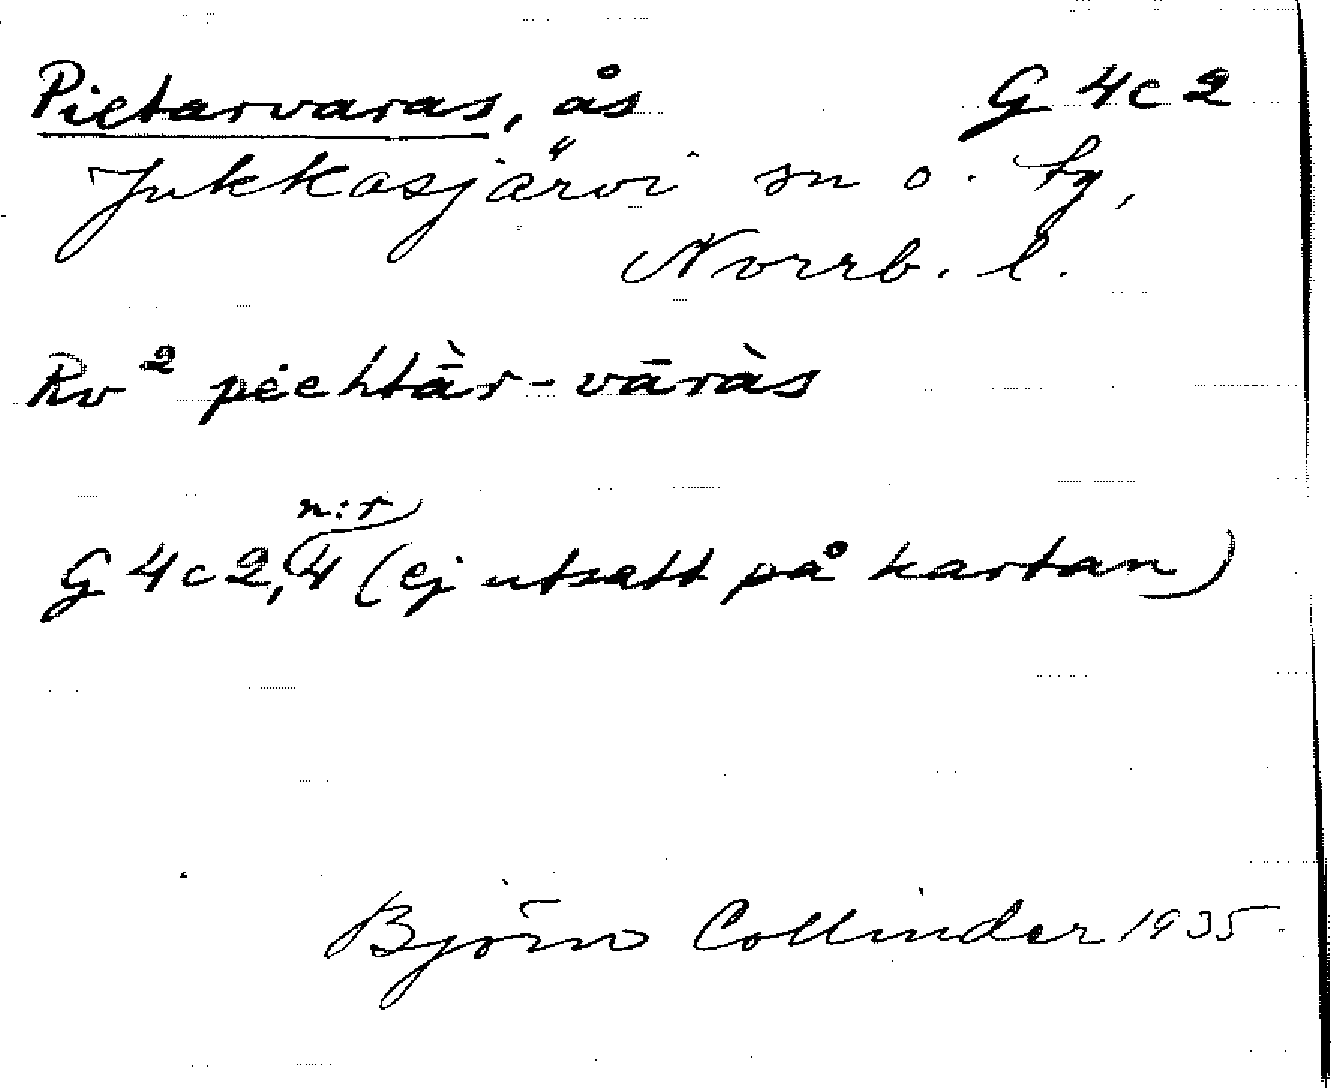 Pietarvaras, ås G 4c2
Jukkasjärvi sn o. tg,
Norrb. l.
Rv² pėchtā̀r-vāràs
n:r
G 4c2, 4 (ej utsatt på kartan)
Björn Collinder 1935.